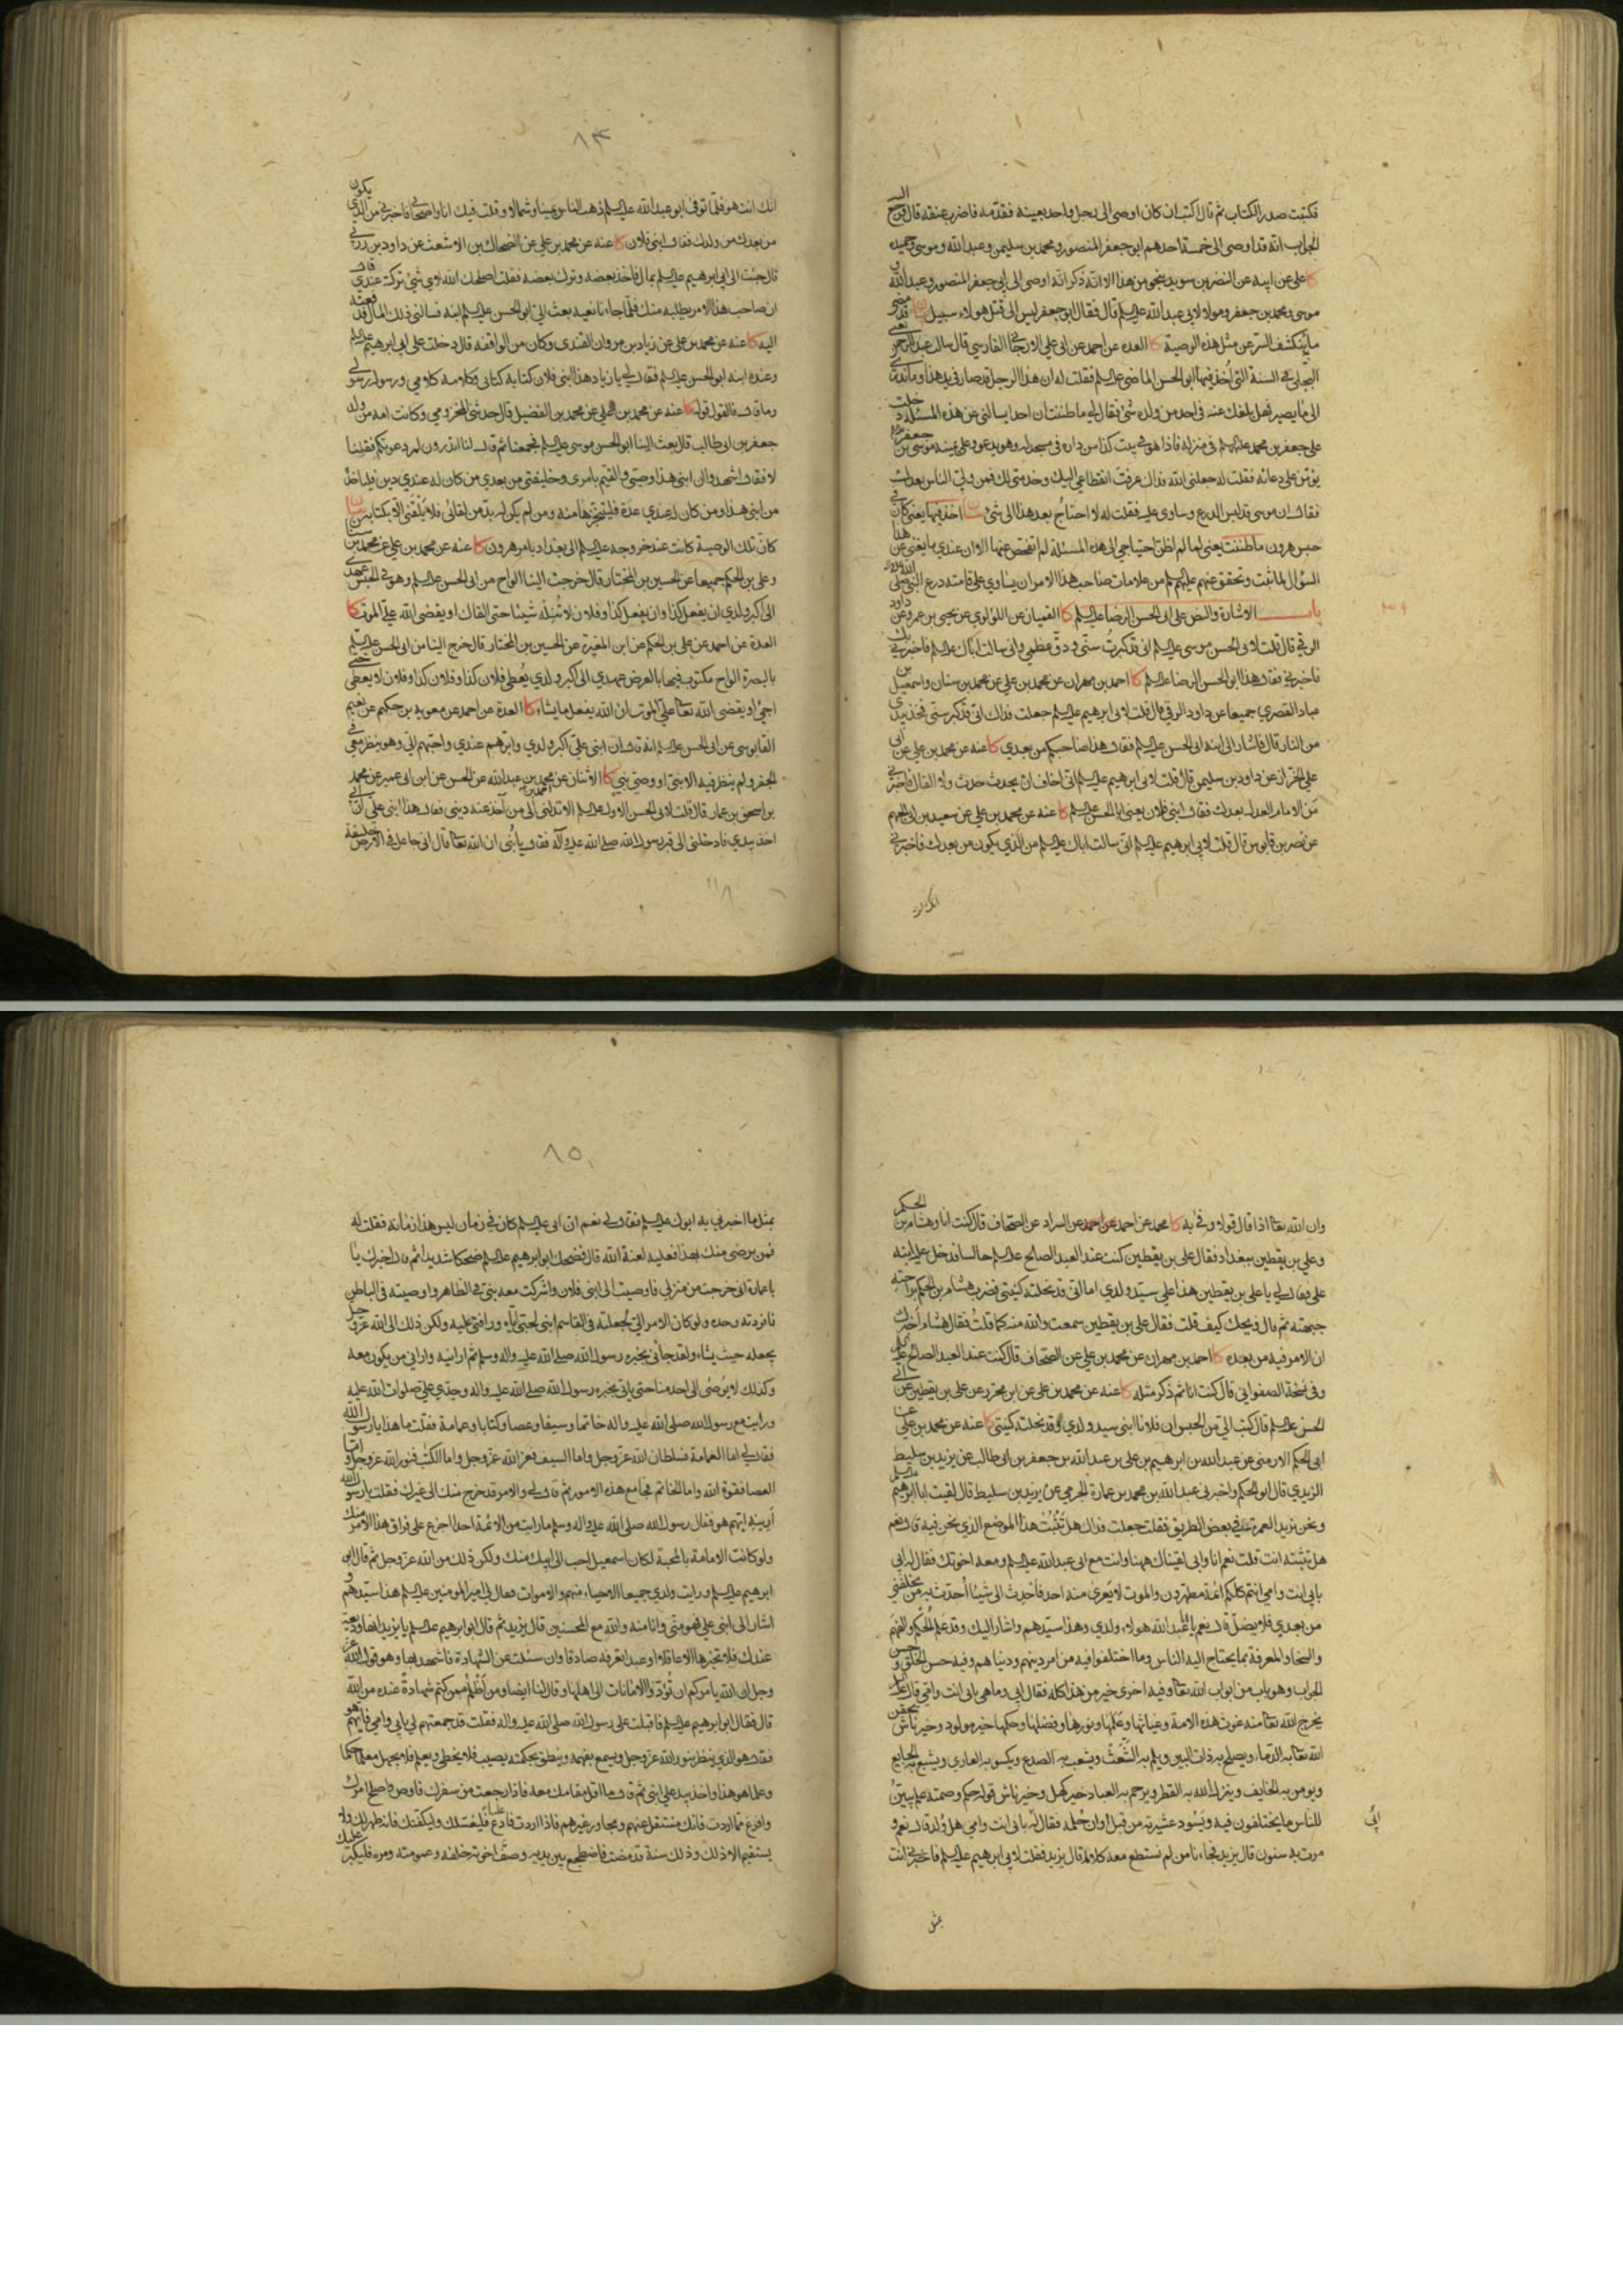 فكتبت صدر الكتاب ثم قال اكتب ان كان اوصى الى رجل واحد بعينه فقدمه فاضرب عنقه قال فرجع اليه
الجواب انه قد اوصى الى خمسة احدهم ابو جعفر المنصور ومحمد بن سليمن وعبد الله وموسى وحميده
كا علي عن ابيه عن النضر بن سويد بنحو من هذا الا انه ذكر انه اوصى الى ابي جعفر المنصور وعبد الله و
موسى ومحمد بن جعفر ومولا لابي عبد الله عليه السلم قال فقال ابو جعفر ليس الى قتل هولاء سبيل بيان قد مضى
ما ينكشف السر عن مثل هذه الوصية كا العده عن احمد عن ابي علي الارجاني الفارسي قال سالت عبد الرحمن
البجلي في السنة التي اخذ فيها ابو الحسن الماضي عليه السلم فقلت له ان هذا الرجل قد صار في يد هذا وما ندري
الى ما يصير فهل بلغك عنه في احد من ولده شئ فقال لي ما ظننت ان احدا يسالني عن هذه المسئلة دخلت
على جعفر بن محمد عليه السلم في منزله فاذا هو في بيت كذا من داره في مسجد له وهو يدعو وعلى يمينه موسى بن جعفر
يؤمن على دعائه فقلت له جعلني الله فداك عرفت انقطاعي اليك وخدمتي لك فمن ولي الناس بعدك
فقال ان موسى قد لبس الدرع وساوى عليه فقلت له لا احتاج بعد هذا الى شئ بيان اخذ فيها يعني كان في
حبس هرون ما ظننت يعني لما لم اظن احتياجي الى هذه المسئلة لم اتفحص عنها الا ان عندي ما يغني عن هذا
السؤال لما ثبت وتحقق عنهم عليهم السلم من علامات صاحب هذا الامر ان يساوي على قامته درع النبي صلى الله عليه واله
باب الاشارة والنص على ابي الحسن الرضا عليه السلم كا القميان عن اللؤلوي عن يحيى بن عمرو عن داود
الرقي قال قلت لابي الحسن موسى عليه السلم اني قد كبرت سني ودق عظمي واني سالت اباك عليه السلم فاخبرني بك
فاخبرني فقال هذا ابو الحسن الرضا عليه السلم كا احمد بن مهران عن محمد بن علي عن محمد بن سنان واسمعيل بن
عباد القصري جميعا عن داود الرقي قال قلت لابي ابرهيم عليه السلم جعلت فداك اني قد كبر سني فخذ بيدي
من النار قال فاشار الى ابنه ابي الحسن عليه السلم فقال هذا صاحبكم من بعدي كا عنه عن محمد بن علي عن ابي
علي الخزاز عن داود بن سليمن قال قلت لابي ابرهيم عليه السلم اني اخاف ان يحدث حدث ولا القاك فاخبرني
من الامام العدل بعدك فقال ابني فلان يعني ابا الحسن عليه السلم كا عنه عن محمد بن علي عن سعيد بن ابي الجهم
عن نصر بن قابوس قال قلت لابي ابرهيم عليه السلم اني سالت اباك عليه السلم من الذي يكون من بعدك فاخبرني
انك انت
٨٤
انك انت هو فلما توفى ابو عبد الله عليه السلم ذهب الناس يمينا وشمالا وقلت فيك انا واصحابي فاخبرني من الذي يكون
من بعدك من ولدك فقال ابني فلان كا عنه عن محمد بن علي عن الضحاك بن الاشعث عن داود بن زربي
قال جئت الى ابي ابرهيم عليه السلم بمال فاخذ بعضه وترك بعضه فقلت اصلحك الله لاي شئ تركته عندي قال
ان صاحب هذا الامر يطلبه منك فلما جاءنا نعيه بعث الي ابو الحسن عليه السلم ابنه فسالني ذلك المال فدفعته
اليه كا عنه عن محمد بن علي عن زياد بن مروان القندي وكان من الواقفة قال دخلت على ابي ابرهيم عليه السلم
وعنده ابنه ابو الحسن عليه السلم فقال لي يا زياد هذا ابني فلان كتابه كتابي وكلامه كلامي ورسوله رسولي
وما قال فالقول قوله كا عنه عن محمد بن علي عن محمد بن الفضيل قال حدثني المخزومي وكانت امه من ولد
جعفر بن ابي طالب قال بعث الينا ابو الحسن موسى عليه السلم فجمعنا ثم قال لنا اتدرون لم دعوتكم فقلنا
لا فقال اشهدوا ان ابني هذا وصيي والقيم بامري وخليفتي من بعدي من كان له عندي دين فلياخذ
من ابني هذا ومن كان له عندي عدة فلينتجزها منه ومن لم يكن له بد من لقائي فلا يلقني الا بكتابه بيان
كان تلك الوصية كانت عند خروجه عليه السلم الى بغداد بامر هرون كا عنه عن محمد بن علي عن محمد بن سنان
وعلي بن الحكم جميعا عن الحسين بن المختار قال خرجت الينا الواح من ابي الحسن عليه السلم وهو في الحبس عهدي
الى اكبر ولدي ان يفعل كذا وان يفعل كذا وفلان لا تنله شيئا حتى القاك او يقضي الله علي الموت كا
العدة عن احمد عن علي بن الحكم عن ابن المغيرة عن الحسين بن المختار قال خرج الينا من ابي الحسن عليه السلم
بالبصرة الواح مكتوب فيها بالعرض عهدي الى اكبر ولدي يعطى فلان كذا وفلان كذا وفلان لا يعطى حتى
اجئ او يقضي الله تعا علي الموت ان الله يفعل ما يشاء كا العدة عن احمد عن معوية بن حكيم عن نعيم
القابوسي عن ابي الحسن عليه السلم انه قال ان ابني علي اكبر ولدي وابرهم عندي واحبهم الي وهو ينظر معي في
الجفر ولم ينظر فيه الا نبي او وصي نبي كا الاثنان عن احمد بن محمد بن عبد الله عن الحسن عن ابن ابي عمير عن محمد
بن اسحق بن عمار قال قلت لابي الحسن الاول عليه السلم الا تدلني الى من آخذ عنه ديني فقال هذا ابني علي ان ابي
اخذ بيدي فادخلني الى قبر رسول الله صلى الله عليه وآله فقال يا بني ان الله تعا قال اني جاعل في الارض خليفة
وان الله تعا اذا قال قولا وفى به كا محمد عن احمد عن السراد عن الصحاف قال كنت انا وهشام بن الحكم
وعلي بن يقطين ببغداد فقال علي بن يقطين كنت عند العبد الصالح عليه السلم جالسا فدخل عليه ابنه
علي فقال لي يا علي بن يقطين هذا علي سيد ولدي اما اني قد نحلته كنيتي فضرب هشام بن الحكم براحته
جبهته ثم قال ويحك كيف قلت فقال علي بن يقطين سمعت والله منه كما قلت فقال هشام اخبرك
ان الامر فيه من بعده كا احمد بن مهران عن محمد بن علي عن الصحاف قال كنت عند العبد الصالح عليه السلم
وفي نسخة الصفواني قال كنت انا ثم ذكر مثله كا عنه عن محمد بن علي عن ابن محرز عن علي بن يقطين عن ابي
الحسن عليه السلم قال كتب الي من الحبس ان فلانا ابني سيد ولدي وقد نحلته كنيتي كا عنه عن محمد بن علي عن
ابي الحكم الارمني عن عبد الله بن ابرهيم بن علي بن عبد الله بن جعفر بن ابي طالب عن يزيد بن سليط
الزيدي قال ابو الحكم واخبرني عبد الله بن محمد بن عمارة الجرمي عن يزيد بن سليط قال لقيت ابا ابرهيم عليه السلم
ونحن نريد العمرة في بعض الطريق فقلت جعلت فداك هل تثبت هذا الموضع الذي نحن فيه قال نعم
هل تثبته انت قلت نعم انا وابي لقيناك ههنا وانت مع ابي عبد الله عليه السلم ومعه اخوتك فقال له ابي
بابي انت وامي انتم كلكم ائمة مطهرون والموت لا يعرى منه احد فاحدث الي شيئا احدث به من يخلفني
من بعدي فلا يضل قال نعم يا ابا عبد الله هولاء ولدي وهذا سيدهم واشار اليك وقد علم الحكم والفهم
والسخاء والمعرفة بما يحتاج اليه الناس وما اختلفوا فيه من امر دينهم ودنياهم وفيه حسن الخلق وحسن
الجواب وهو باب من ابواب الله تعا وفيه اخرى خير من هذا كله فقال له ابي وما هي بابي انت وامي قال عليه السلم
يخرج الله تعا منه غوث هذه الامة وغياثها وعلمها ونورها وفضلها وحكمها خير مولود وخير ناش يحقن
الله تعا به الدماء ويصلح به ذات البين ويلم به الشعث ويشعب به الصدع ويكسو به العاري ويشبع به الجايع
ويومن به الخايف وينزل الله به القطر ويرحم به العباد خير كهل وخير ناش قوله حكم وصمته علم يبين
للناس ما يختلفون فيه ويسود عشيرته من قبل اوان حلمه فقال له ابي بابي انت وامي هل ولد قال نعم و
مرت به سنون قال يزيد فجاءنا من لم نستطع معه كلاما قال يزيد فقلت لابي ابرهيم عليه السلم فاخبرني انت
بمثل
٨٥
بمثل ما اخبرني به ابوك عليه السلم فقال لي نعم ان ابي عليه السلم كان في زمان ليس هذا زمانه فقلت له
فمن يرضى منك بهذا فعليه لعنة الله قال فضحك ابو ابرهيم عليه السلم ضحكا شديدا ثم قال اخبرك يا
با عمارة اني خرجت من منزلي فاوصيت الى ابني فلان واشركت معه بني في الظاهر واوصيته في الباطن
فافردته وحده ولو كان الامر الي لجعلته في القاسم ابني لحبي اياه ورافتي عليه ولكن ذلك الى الله عز وجل
يجعله حيث يشاء ولقد جاءني بخبره رسول الله صلى الله عليه واله وسلم ثم ارانيه واراني من يكون معه
وكذلك لا يوصى الى احد منا حتى ياتي بخبره رسول الله صلى الله عليه واله وجدي علي صلوات الله عليه
ورايت مع رسول الله صلى الله عليه واله خاتما وسيفا وعصا وكتابا وعمامة فقلت ما هذا يا رسول الله
فقال لي اما العمامة فسلطان الله عز وجل واما السيف فعز الله عز وجل واما الكتب فنور الله عز وجل واما
العصا فقوة الله واما الخاتم فجامع هذه الامور ثم قال لي والامر قد خرج منك الى غيرك فقلت يا رسول الله
ارينيه ايهم هو فقال رسول الله صلى الله عليه واله وسلم ما رايت من الائمة احدا اجزع على فراق هذا الامر منك
ولو كانت الامامة بالمحبة لكان اسمعيل احب الى ابيك منك ولكن ذلك من الله عز وجل ثم قال ابو
ابرهيم عليه السلم ورايت ولدي جميعا الاحياء منهم والاموات فقال لي امير المومنين عليه السلم هذا سيدهم و
اشار الى ابني علي فهو مني وانا منه والله مع المحسنين قال يزيد ثم قال ابو ابرهيم عليه السلم يا يزيد انها وديعة
عندك فلا تخبر بها الا عاقلا او عبدا تعرفه صادقا وان سئلت عن الشهادة فاشهد بها وهو قول الله عز
وجل ان الله يامركم ان تؤدوا الامانات الى اهلها وقال لنا ايضا ومن اظلم ممن كتم شهادة عنده من الله
قال فقال ابو ابرهيم عليه السلم فاقبلت على رسول الله صلى الله عليه واله فقلت قد جمعتهم لي بابي وامي فايهم هو
فقال هو الذي ينظر بنور الله عز وجل ويسمع بفهمه وينطق بحكمته يصيب فلا يخطي ويعلم فلا يجهل معلما حكما
وعلما هو هذا واخذ بيد علي ابني ثم قال ما اقل مقامك معه فاذا رجعت من سفرك فاوص واصلح امرك
وافرغ مما اردت فانك منتقل عنهم ومجاور غيرهم فاذا اردت فادع عليا فليغسلك وليكفنك فانه طهر لك ولا
يستقيم الا ذلك وذلك سنة قد مضت فاضطجع بين يديه وصف اخوته خلفه وعمومته ومره فليكبر عليك